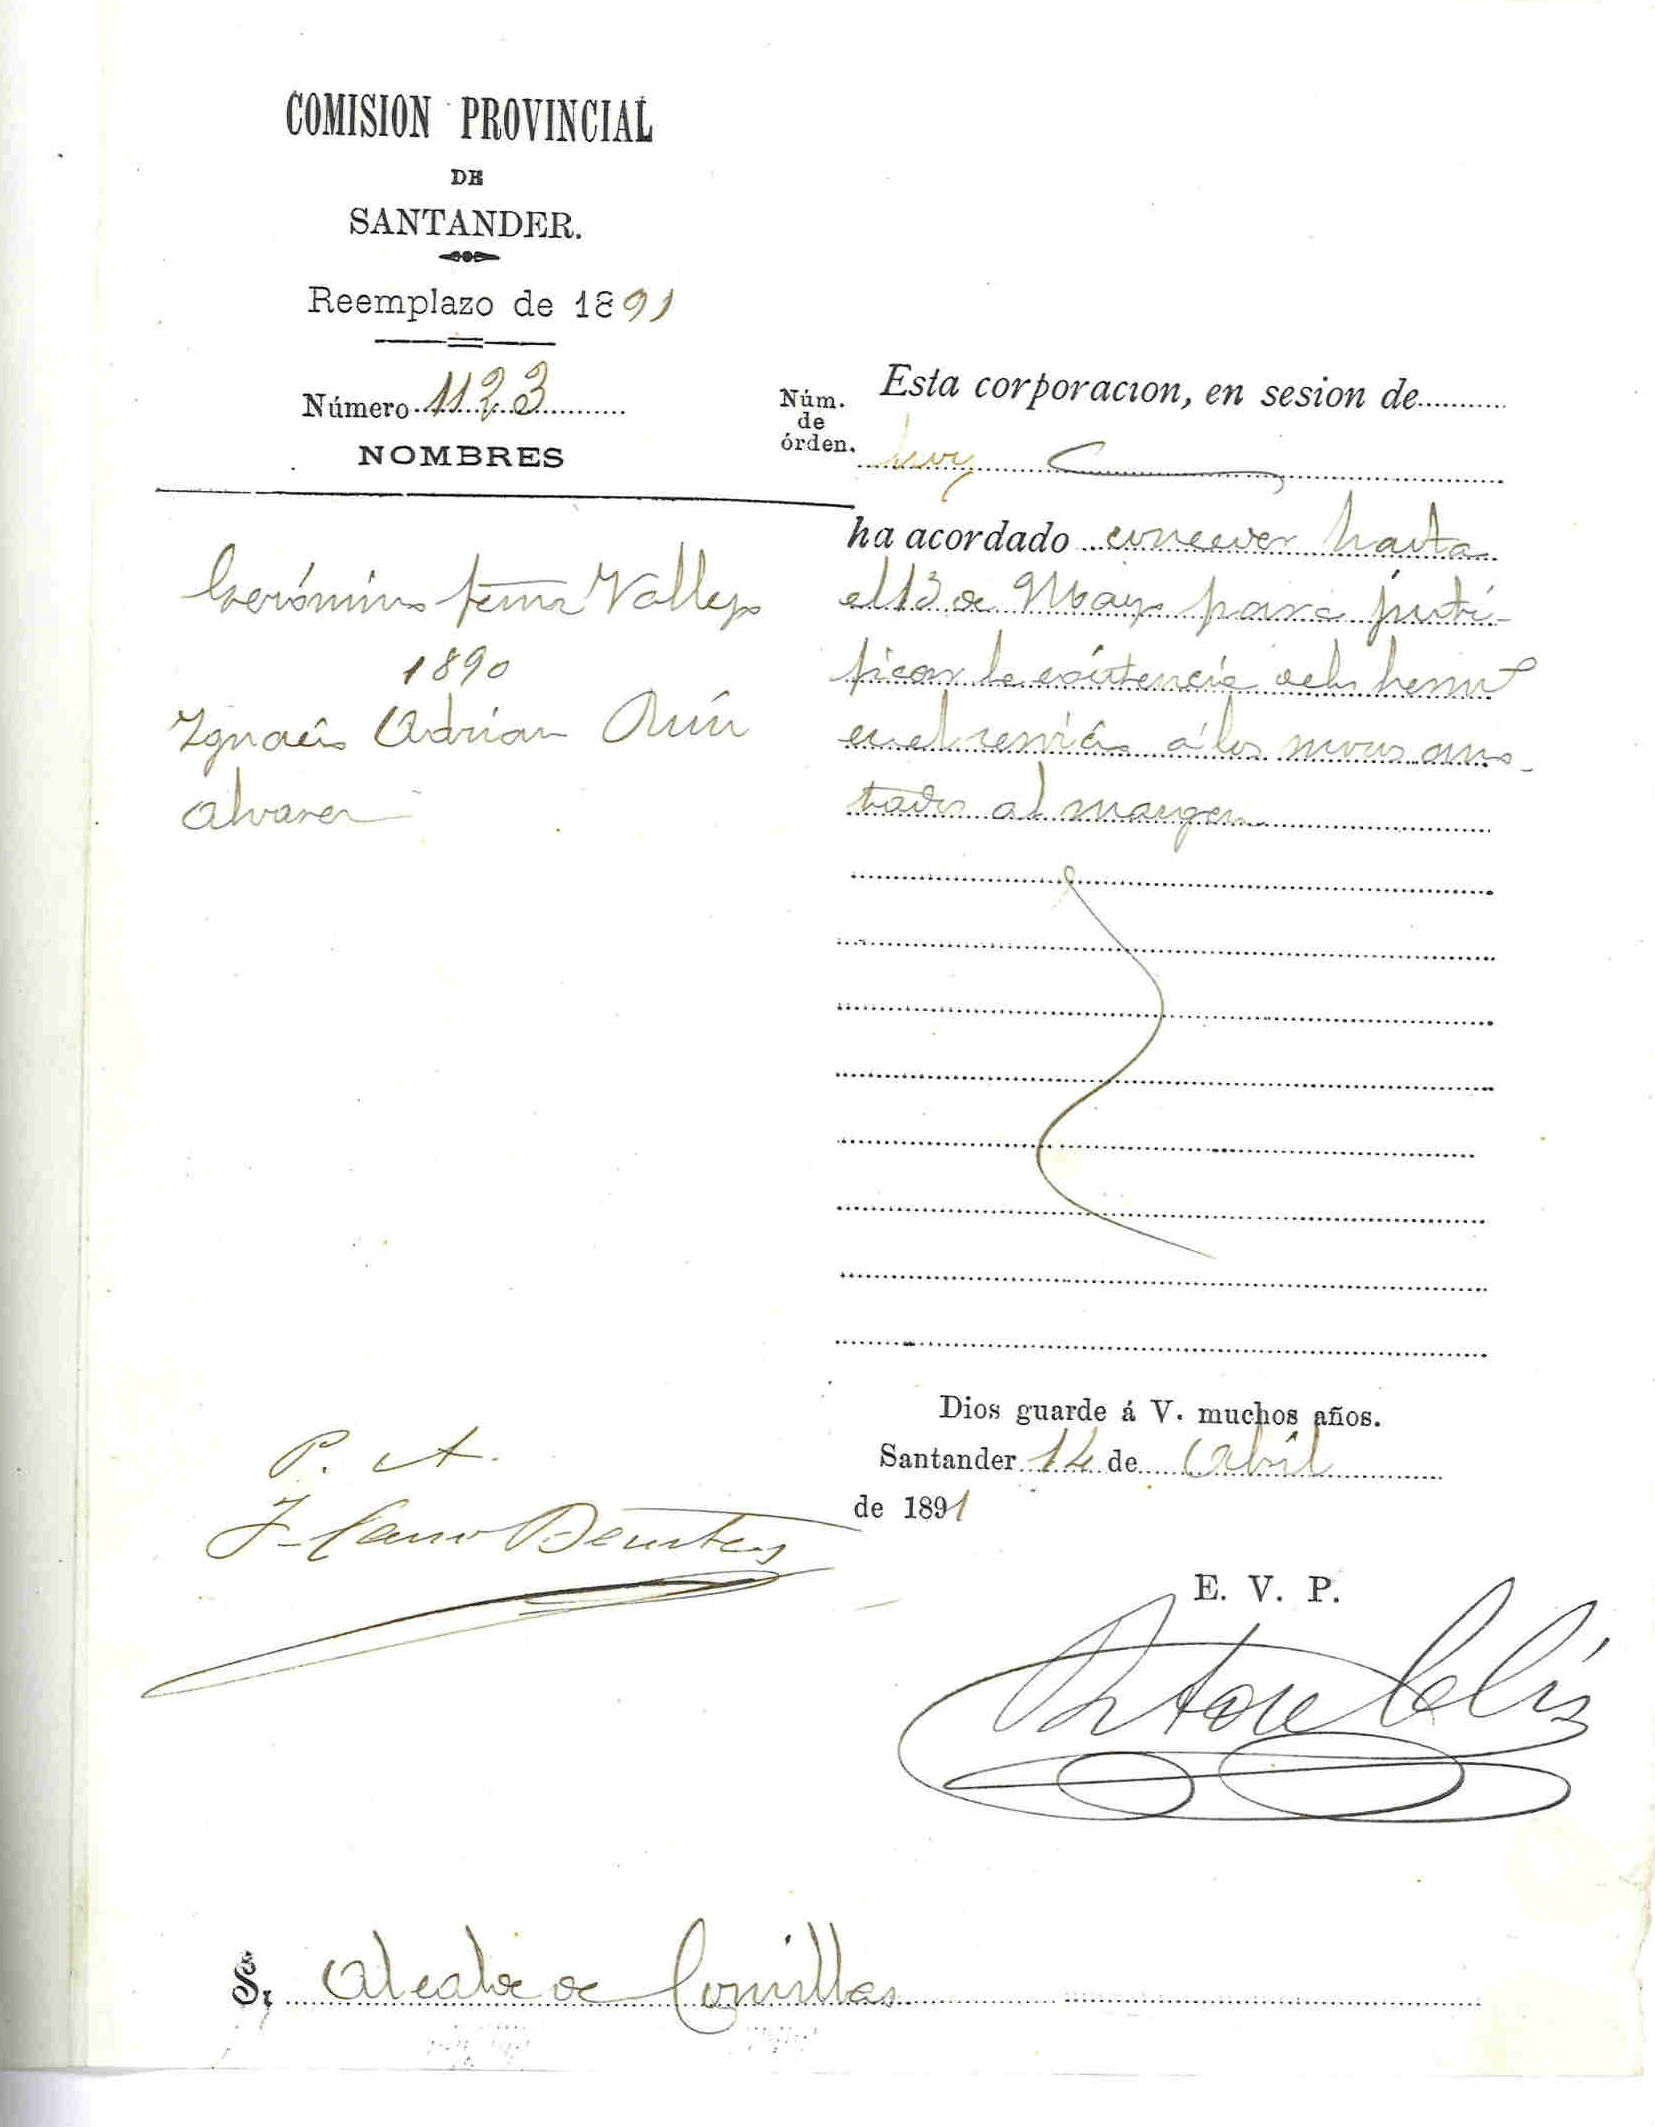 COMISION PROVINCIAL
DE
SANTANDER.
Reemplazo de 1891
Número 1123
NOMBRES
Gerónimo Vallejo
1890
Ignacio Adrian Ruiz
Alvarez
Núm.
de
órden.
Esta corporacion, en sesion de
hoy
ha acordado conceder hasta
el 13 de Mayo para justi-
ficar la existencia de los herms
en el servicio á los mozos ano-
tados al margen
Dios guarde á V. muchos años.
Santander 14 de Abril
de 1891
P. A.
J. Cano Benitez
E. V. P.
Celis
Sr. Alcalde de Comillas